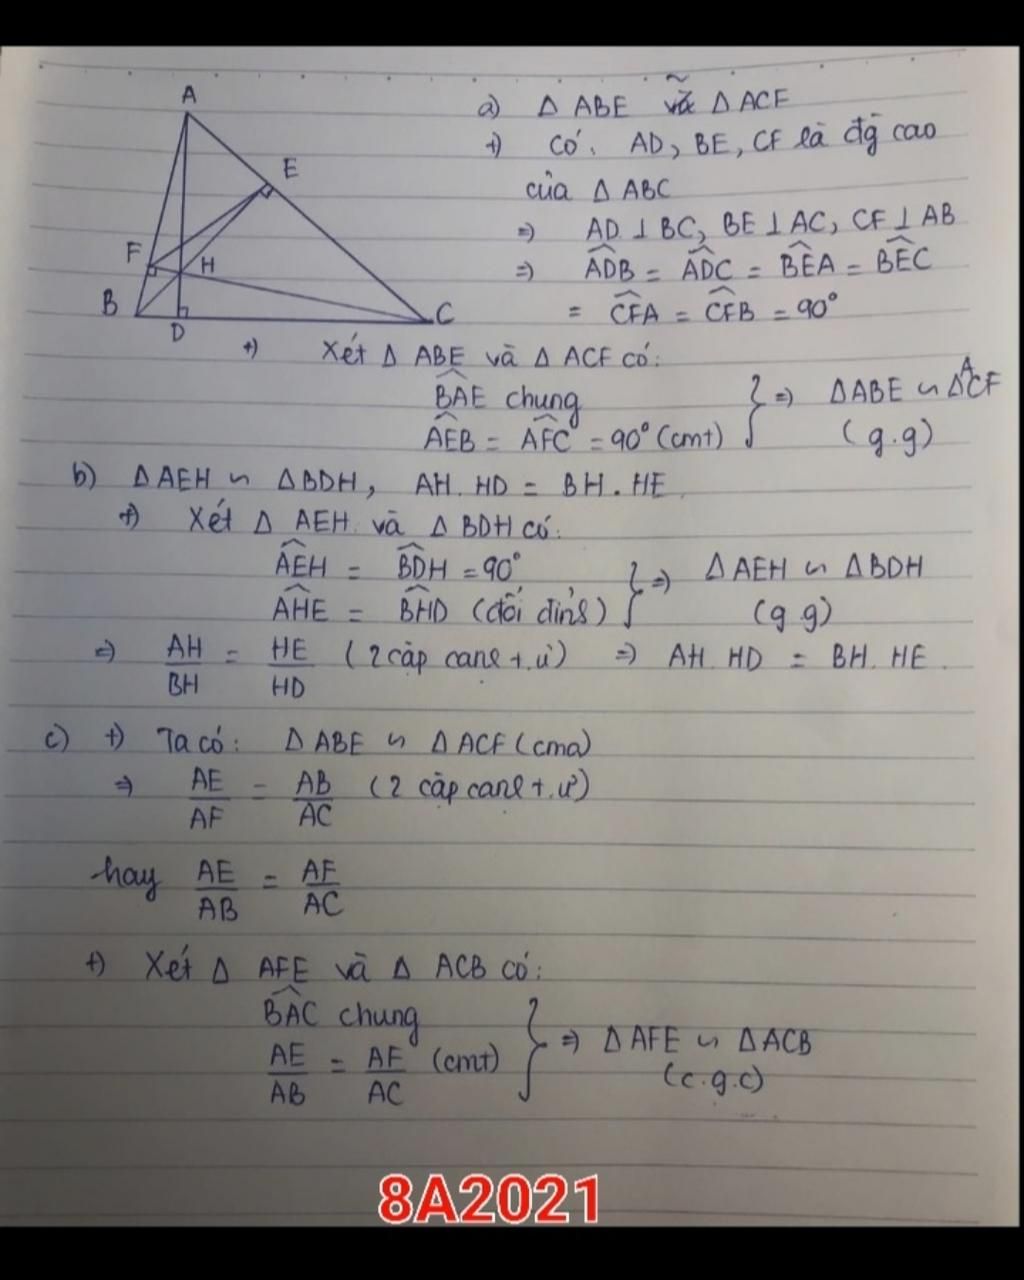 A
E
F
H
B
D
C
a) Δ ABE và Δ ACF
+) Có: AD, BE, CF là đg cao
của Δ ABC
⇒ AD ⊥ BC, BE ⊥ AC, CF ⊥ AB
⇒ \widehat{ADB} = \widehat{ADC} = \widehat{BEA} = \widehat{BEC}
= \widehat{CFA} = \widehat{CFB} = 90°
+) Xét Δ ABE và Δ ACF có:
\widehat{BAE} chung
\widehat{AEB} = \widehat{AFC} = 90° (cmt) } ⇒ ΔABE ∽ ΔACF
(g.g)
b) ΔAEH ∽ ΔBDH, AH.HD = BH.HE
+) Xét Δ AEH và Δ BDH có:
\widehat{AEH} = \widehat{BDH} = 90°
\widehat{AHE} = \widehat{BHD} (đối đỉnh) } ⇒ ΔAEH ∽ ΔBDH
(g.g)
⇒ AH/BH = HE/HD (2 cặp cạnh t.ư) ⇒ AH.HD = BH.HE.
c) +) Ta có: ΔABE ∽ ΔACF (cma)
⇒ AE/AF = AB/AC (2 cặp cạnh t.ư)
hay AE/AB = AF/AC
+) Xét Δ AFE và Δ ACB có:
\widehat{BAC} chung
AE/AB = AF/AC (cmt) } ⇒ ΔAFE ∽ ΔACB
(c.g.c)
8A2021